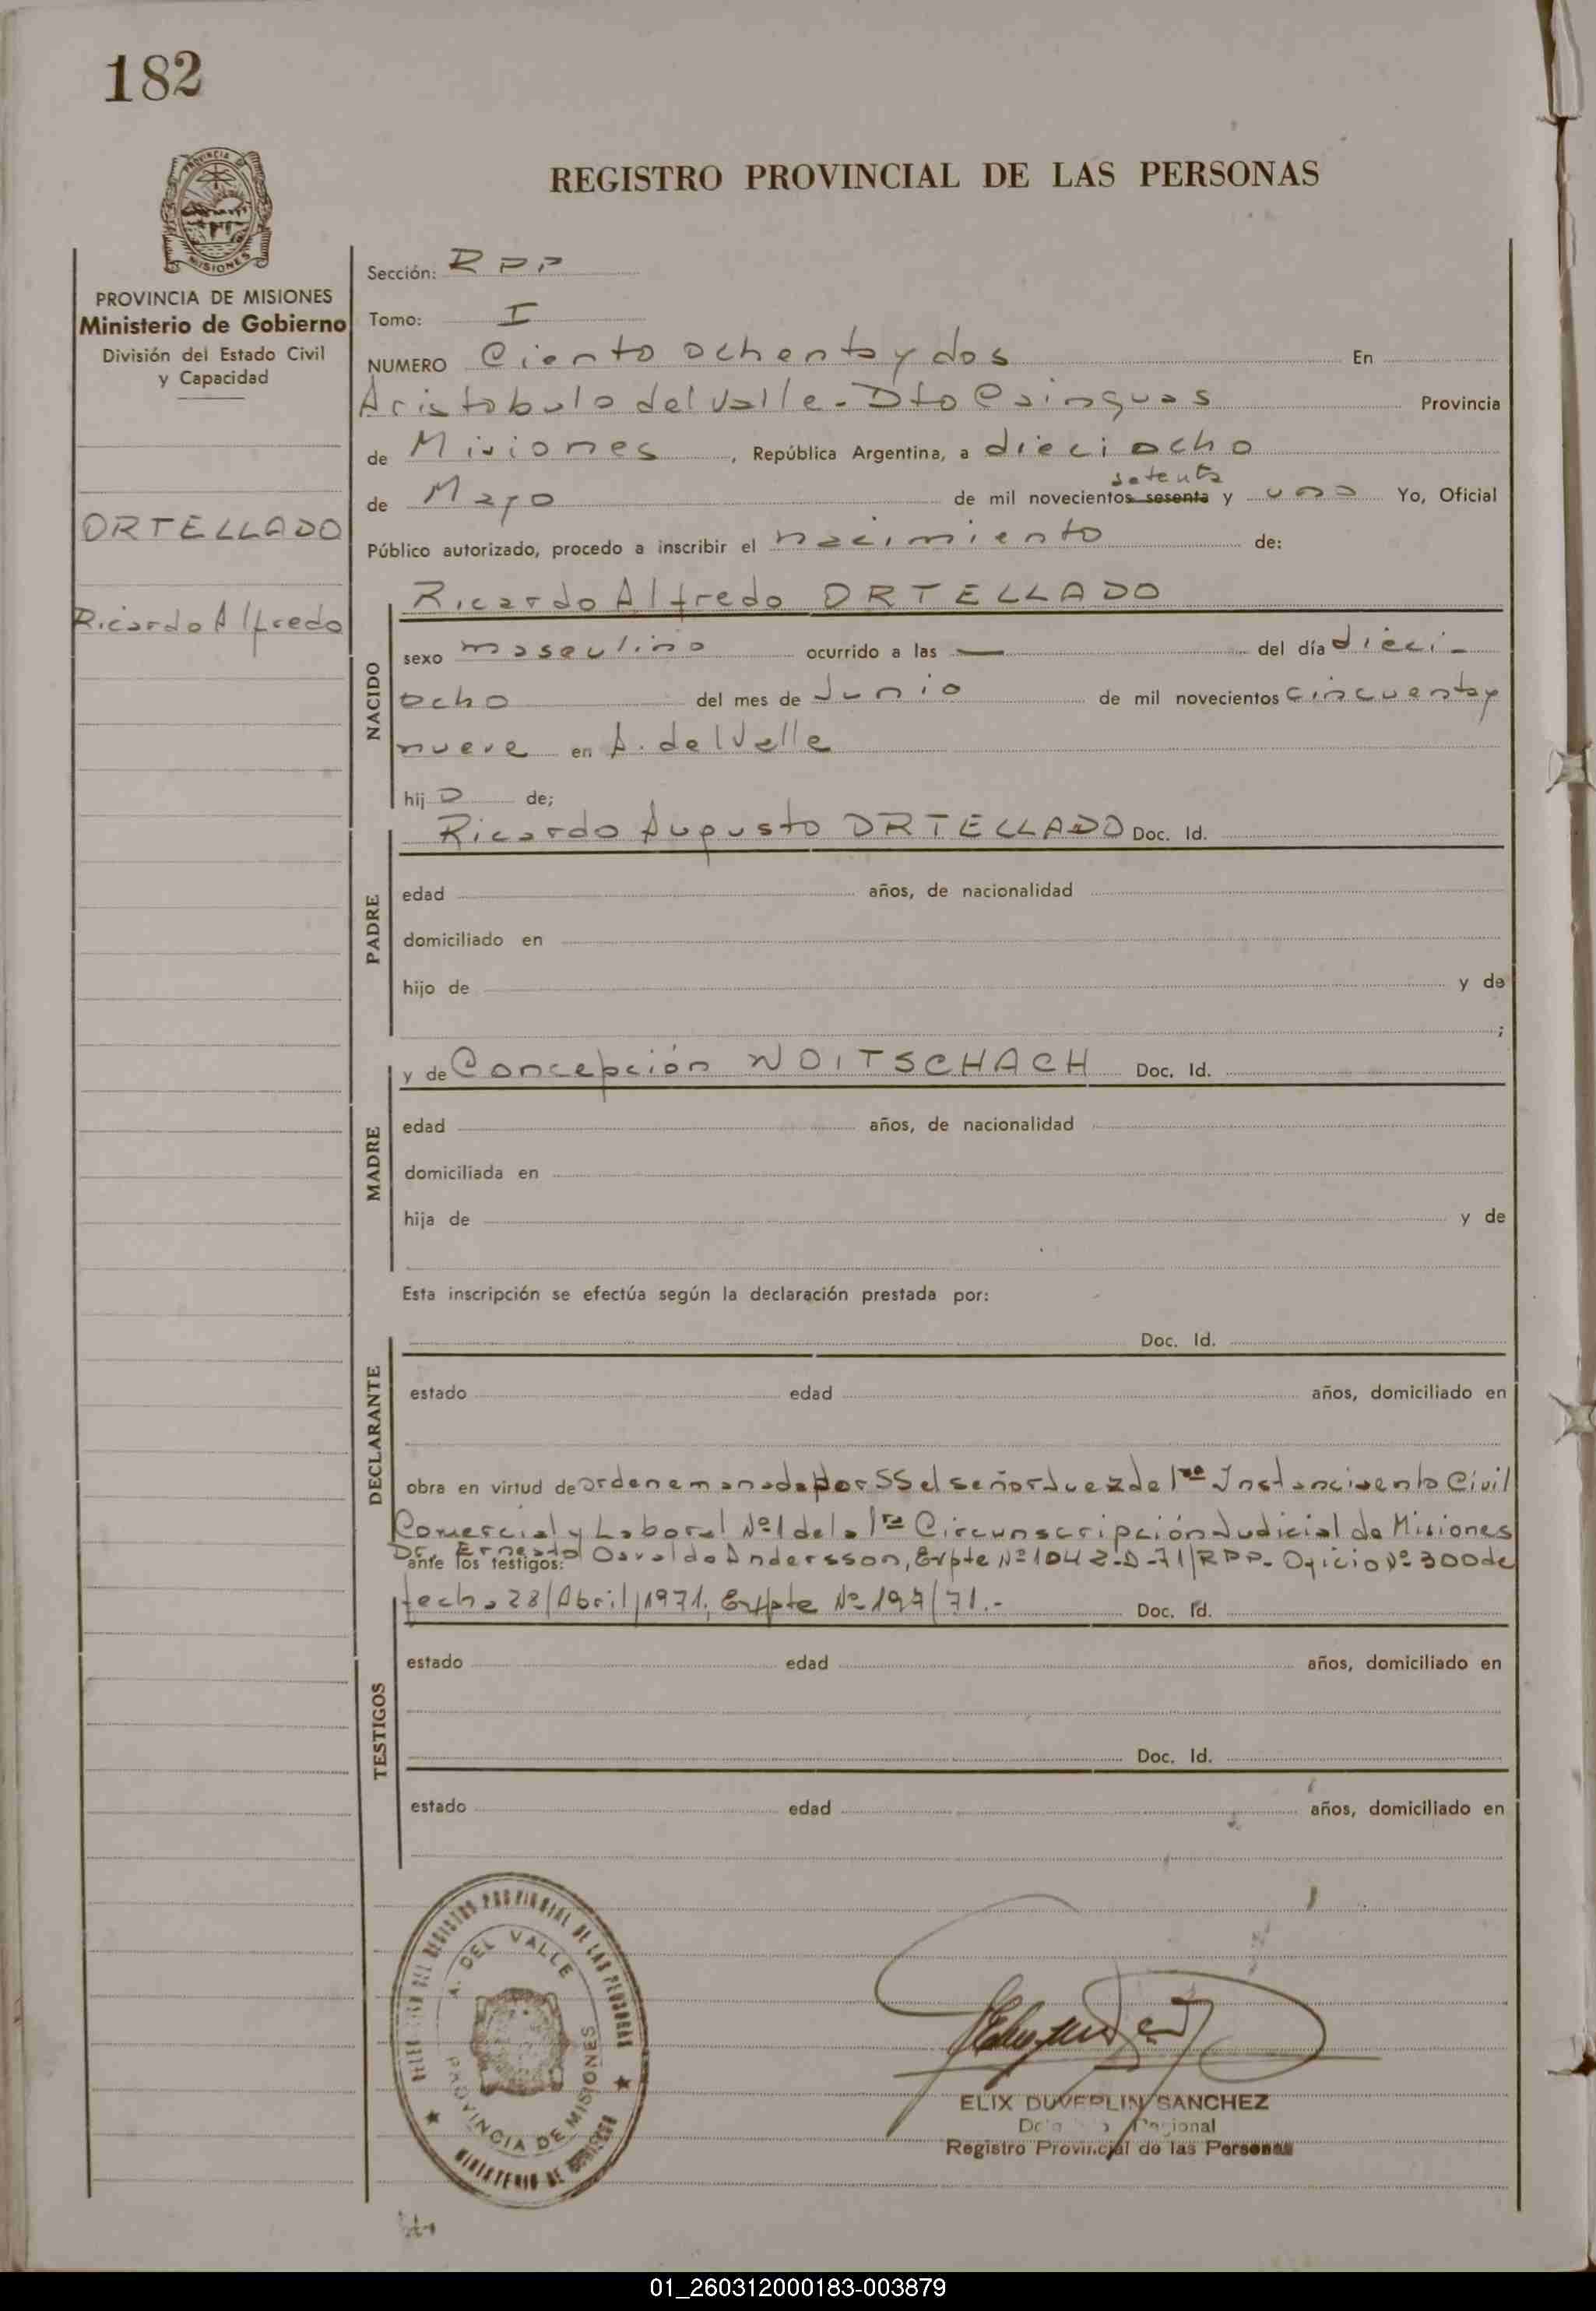 182
REGISTRO PROVINCIAL DE LAS PERSONAS
PROVINCIA DE MISIONES
Ministerio de Gobierno
División del Estado Civil
y Capacidad
ORTELLADO
Ricardo Alfredo
Sección: RPP
Tomo: I
NUMERO Ciento ochenta y dos En
Aristobulo del Valle - Dto Cainguas Provincia
de Misiones, República Argentina, a dieciocho
setenta
de Mayo de mil novecientos sesenta y uno Yo, Oficial
Público autorizado, procedo a inscribir el nacimiento de:
NACIDO
Ricardo Alfredo ORTELLADO
sexo masculino ocurrido a las — del día dieci-
ocho del mes de Junio de mil novecientos cincuenta y
nueve en A. del Valle
hijo de;
PADRE
Ricardo Augusto ORTELLADO Doc. Id.
edad años, de nacionalidad
domiciliado en
hijo de y de
;
MADRE
y de Concepción NOITSCHACH Doc. Id.
edad años, de nacionalidad
domiciliada en
hija de y de
Esta inscripción se efectúa según la declaración prestada por:
DECLARANTE
Doc. Id.
estado edad años, domiciliado en
obra en virtud de orden emanada por SS el señor Juez de 1ra Instancia en lo Civil
Comercial y Laboral Nº 1 de la 1ra Circunscripción Judicial de Misiones
Dr. Ernesto Osvaldo Andersson, Expte Nº 1042-D-71/RPP- Oficio Nº 300 de
ante los testigos:
fecha 28/Abril/1971, Expte Nº 197/71.- Doc. Id.
TESTIGOS
estado edad años, domiciliado en
Doc. Id.
estado edad años, domiciliado en
DEL REGISTRO PROVINCIAL DE LAS PERSONAS
A. DEL VALLE
PROVINCIA DE MISIONES
MINISTERIO DE GOBIERNO
ELIX DUVERLIN SANCHEZ
Registro Provincial de las Personas
01_260312000183-003879